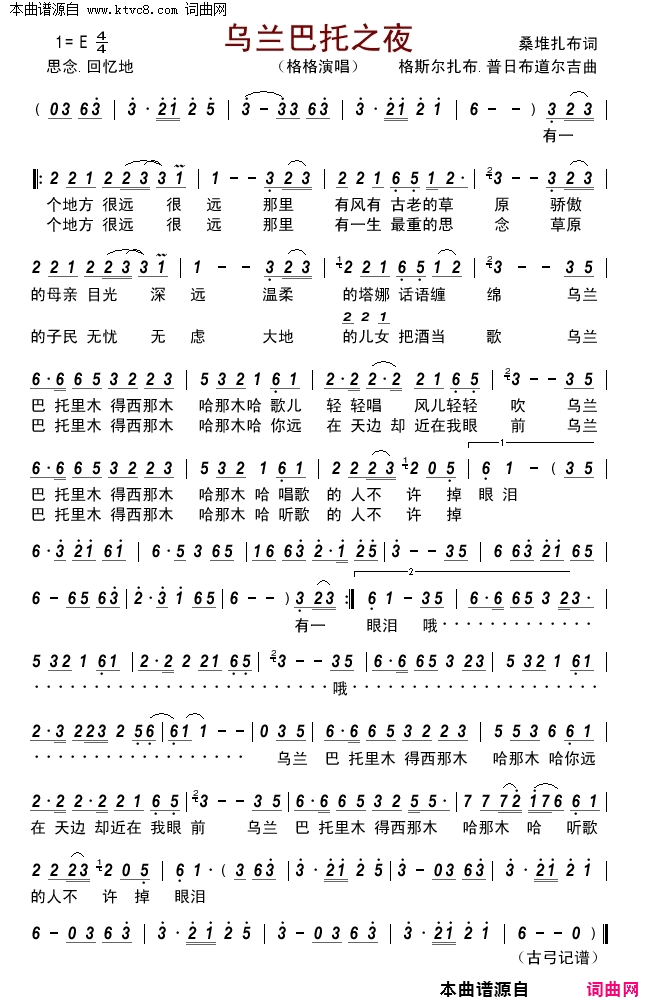 本曲谱源自
www.ktvc8.com 词曲网
乌兰巴托之夜
1= E 4/4
桑堆扎布词
思念.回忆地
（格格演唱）
格斯尔扎布.普日布道尔吉曲
( 0 3 6 3 | 3 · 2 1 2 5 | 3 - 3 3 6 3 | 3 · 2 1 2 1 | 6 - - ) 3 2 3
有一
2 2 1 2 2 3 3 1 | 1 - - 3 2 3 | 2 2 1 6 5 1 2 · | 2 3 - - 3 2 3
个地方 很远 很 远 那里 有风有 古老的草 原 骄傲
个地方 很远 很 远 那里 有一生 最重的思 念 草原
2 2 1 2 2 3 3 1 | 1 - - 3 2 3 | 1 2 2 1 6 5 1 2 | 2 3 - - 3 5
的母亲 目光 深 远 温柔 的塔娜 话语缠 绵 乌兰
2 2 1
的子民 无忧 无 虑 大地 的儿女 把酒当 歌 乌兰
6 · 6 6 5 3 2 2 3 | 5 3 2 1 6 1 | 2 · 2 2 · 2 2 1 6 5 | 2 3 - - 3 5
巴 托里木 得西那木 哈那木哈 歌儿 轻 轻唱 风儿轻轻 吹 乌兰
巴 托里木 得西那木 哈那木哈 你远 在 天边 却 近在我眼 前 乌兰
1
6 · 6 6 5 3 2 2 3 | 5 3 2 1 6 1 | 2 2 2 3 1 2 0 5 | 6 1 - ( 3 5
巴 托里木 得西那木 哈那木 哈 唱歌 的 人不 许 掉 眼 泪
巴 托里木 得西那木 哈那木 哈 听歌 的 人不 许 掉
6 · 3 2 1 6 1 | 6 · 5 3 6 5 | 1 6 6 3 2 · 1 2 5 | 3 - - 3 5 | 6 6 3 2 1 6 5
2
6 - 6 5 6 3 | 2 · 3 1 6 5 | 6 - - ) 3 2 3 :| 6 1 - 3 5 | 6 · 6 6 5 3 2 3
有一 眼泪 哦 · · · · · · · · · · · ·
5 3 2 1 6 1 | 2 · 2 2 2 2 1 6 5 | 2 3 - - 3 5 | 6 · 6 6 5 3 2 3 | 5 3 2 1 6 1
· · · · · · · · · · · · · · · · · · 哦 · · · · · · · · · · · · · · ·
2 · 3 2 2 3 2 5 6 | 6 1 1 - - | 0 0 3 5 | 6 · 6 6 5 3 2 2 3 | 5 5 3 6 6 1
· · · · · · · · · · · · · 乌兰 巴 托里木 得西那木 哈那木 哈你远
2 · 2 2 · 2 2 1 6 5 | 2 3 - - 3 5 | 6 · 6 6 5 3 2 5 5 · | 7 7 7 2 1 7 6 6 1
在 天边 却近在 我眼 前 乌兰 巴 托里木 得西那木 哈那木 哈 听歌
2 2 2 3 1 2 0 5 | 6 1 · ( 3 6 3 | 3 - 0 3 6 3 | 3 · 2 1 2 1
的人不 许 掉 眼泪
6 - 0 3 6 3 | 3 · 2 1 2 5 | 3 - 0 3 6 3 | 3 · 2 1 2 1 | 6 - - - )
（古弓记谱）
本曲谱源自 词曲网